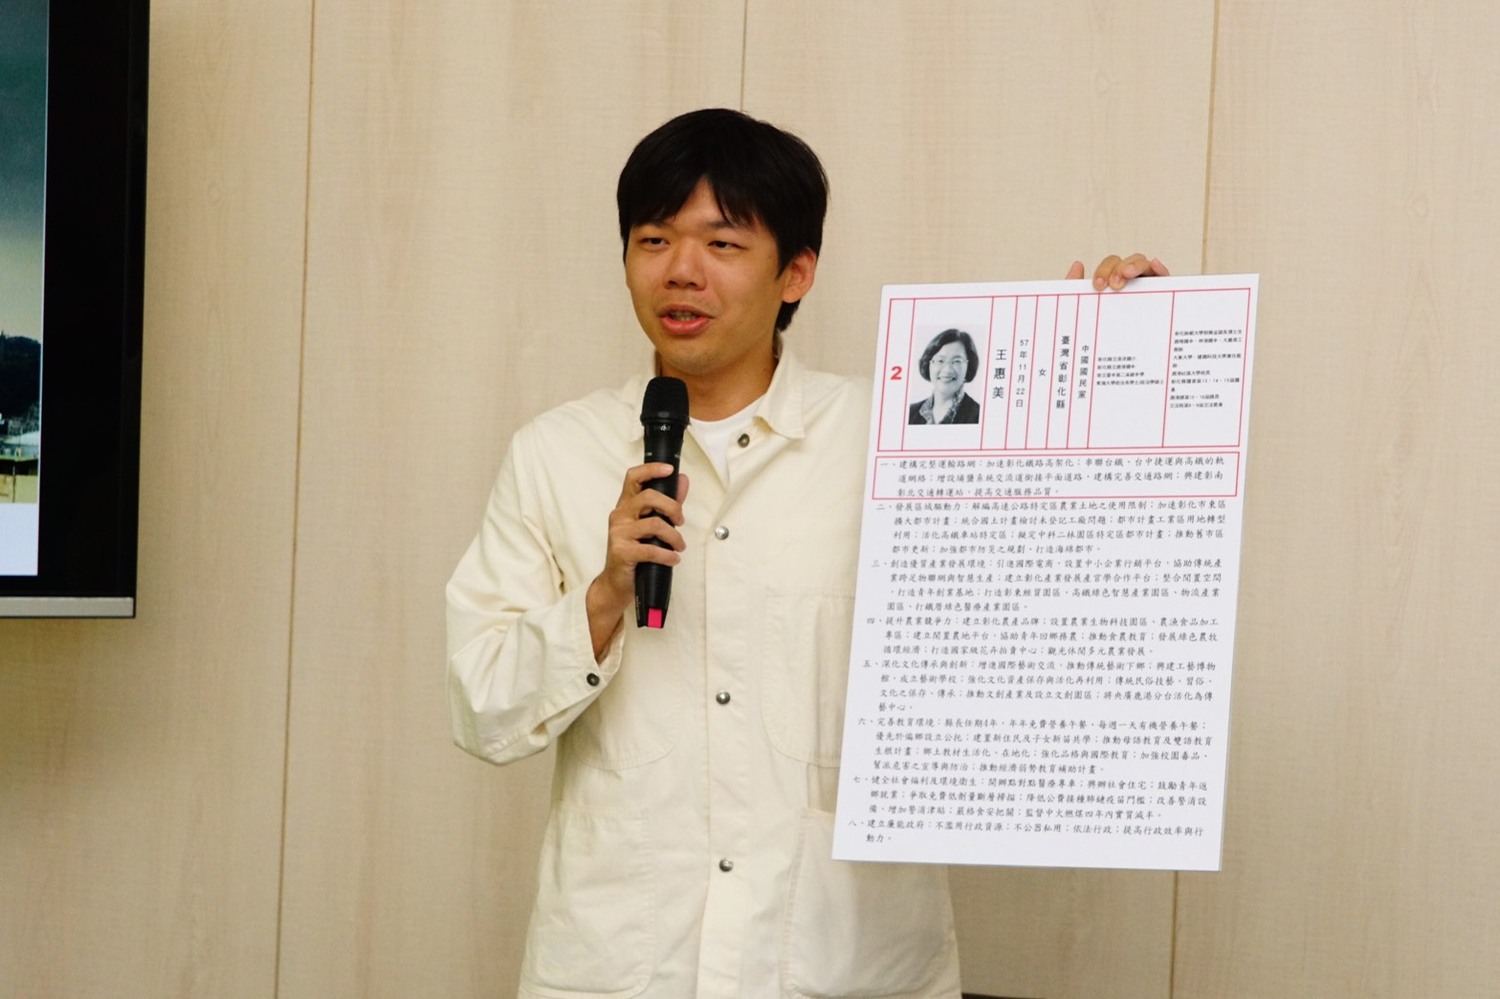 2
王惠美
57年11月22日
女
臺灣省彰化縣
中國國民黨
一、建構完整運輸路網：加速彰化鐵路高架化；串聯台鐵、台中捷運與高鐵的軌
道網絡；增設埔鹽系統交流道銜接平面道路，建構完善交通路網；興建彰南
彰北交通轉運站，提高交通服務品質。
二、發展區域驅動力：解編高速公路特定區農業土地之使用限制；加速彰化市東區
擴大都市計畫；統合國土計畫檢討未登記工廠問題；都市計畫工業區用地轉型
利用；活化高鐵車站特定區；擬定中科二林園區特定區都市計畫；推動舊市區
都市更新；加強都市防災之規劃、打造海綿都市。
三、創造優質產業發展環境：引進國際電商，設置中小企業行銷平台，協助傳統產
業跨足物聯網與智慧生產；建立彰化產業發展產官學合作平台；整合閒置空間
，打造青年創業基地；打造彰東經貿園區、高鐵綠色智慧產業園區、物流產業
園區、打鐵厝綠色醫療產業園區。
四、提升農業競爭力：建立彰化農產品牌；設置農業生物科技園區、農漁食品加工
專區；建立閒置農地平台，協助青年回鄉務農；推動食農教育；發展綠色農牧
循環經濟；打造國家級花卉拍賣中心；觀光休閒多元農業發展。
五、深化文化傳承與創新：增進國際藝術交流，推動傳統藝術下鄉；興建工藝博物
館，成立藝術學校；強化文化資產保存與活化再利用；傳統民俗技藝、習俗、
文化之保存、傳承；推動文創產業及設立文創園區；將央廣鹿港分台活化為傳
藝中心。
六、完善教育環境：縣長任期4年，年年免費營養午餐、每週一天有機營養午餐；
優先於偏鄉設立公托；建置新住民及子女新苗共學；推動母語教育及雙語教育
生根計畫；鄉土教材生活化、在地化；強化品格與國際教育；加強校園毒品、
幫派危害之宣導與防治；推動經濟弱勢教育補助計畫。
七、健全社會福利及環境衛生：開辦點對點醫療專車；興辦社會住宅；鼓勵青年返
鄉就業；爭取免費低劑量斷層掃描；降低公費接種肺鏈疫苗門檻；改善警消設
備、增加警消津貼；嚴格食安把關；監督中火燃煤四年內實質減半。
八、建立廉能政府：不濫用行政資源；不公器私用；依法行政；提高行政效率與行
動力。